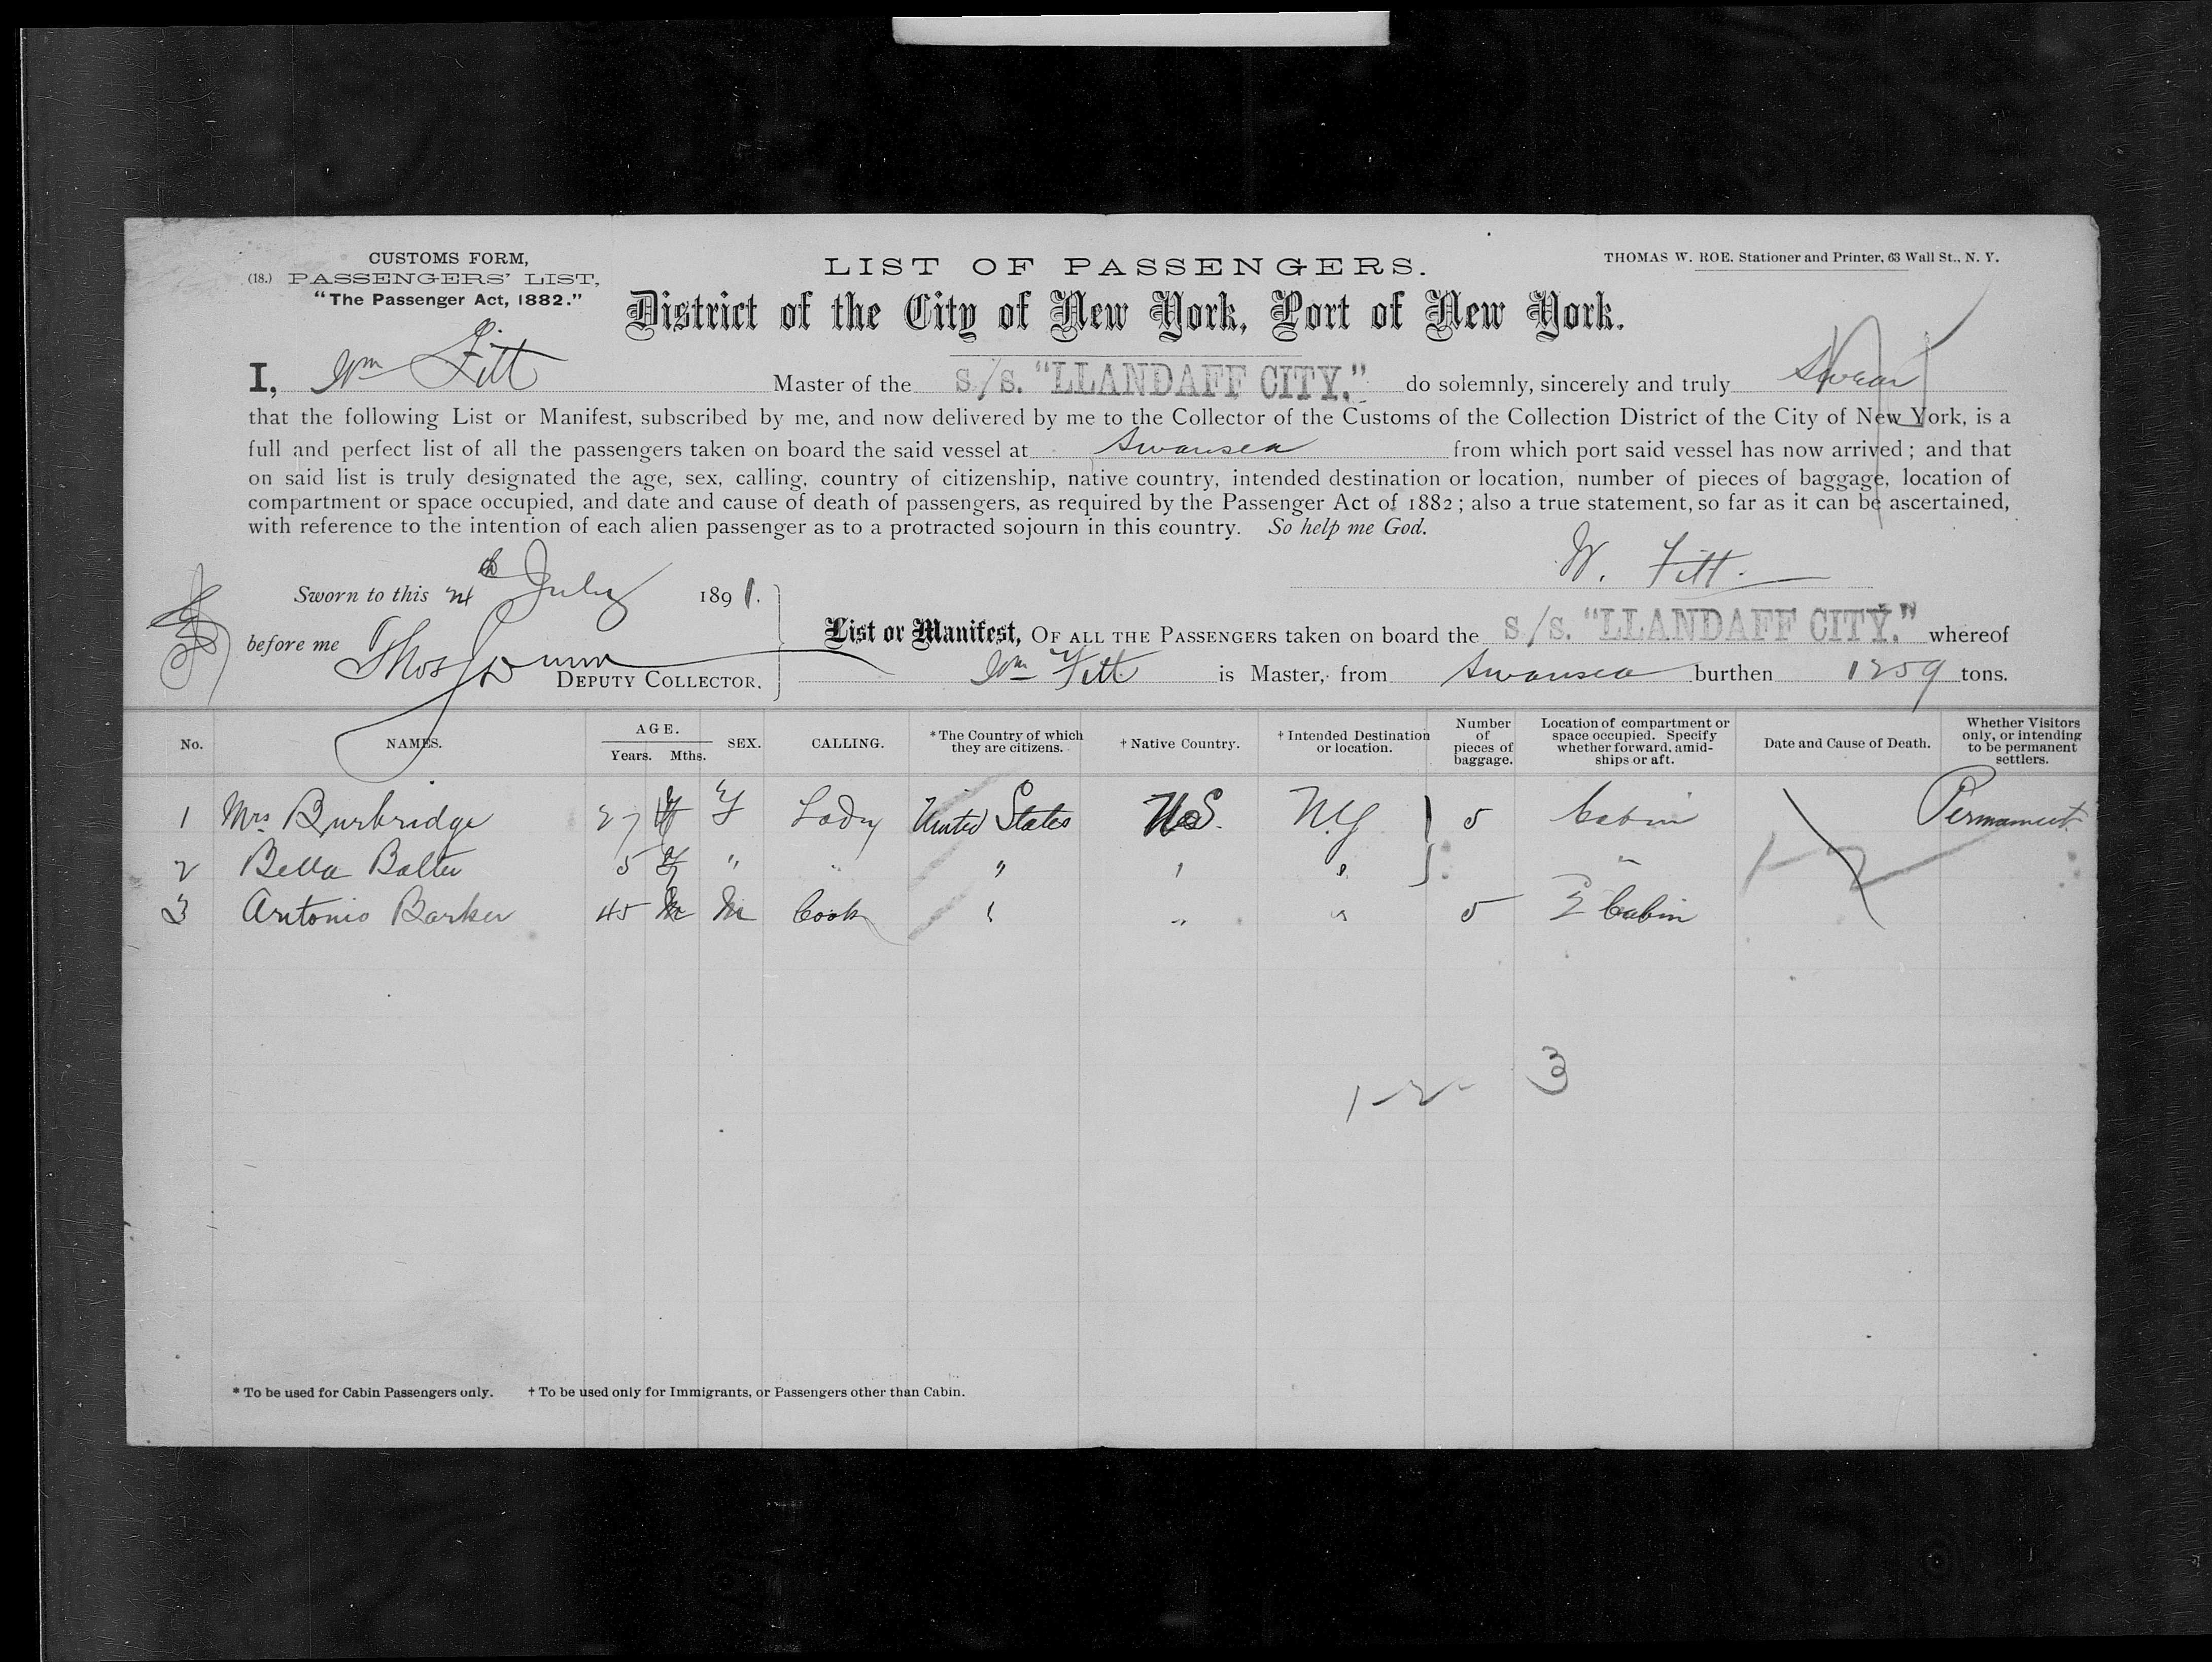 CUSTOMS FORM,
(18.) PASSENGERS' LIST,
"The Passenger Act, 1882."
LIST OF PASSENGERS.
THOMAS W. ROE. Stationer and Printer, 63 Wall St., N. Y.
District of the City of New York, Port of New York.
I, Wm Fitt Master of the S/S. "LLANDAFF CITY." do solemnly, sincerely and truly Swear
that the following List or Manifest, subscribed by me, and now delivered by me to the Collector of the Customs of the Collection District of the City of New York, is a
full and perfect list of all the passengers taken on board the said vessel at Swansea from which port said vessel has now arrived; and that
on said list is truly designated the age, sex, calling, country of citizenship, native country, intended destination or location, number of pieces of baggage, location of
compartment or space occupied, and date and cause of death of passengers, as required by the Passenger Act of 1882; also a true statement, so far as it can be ascertained,
with reference to the intention of each alien passenger as to a protracted sojourn in this country. So help me God.
W. Fitt.
Sworn to this July 1891.
before me Thos
DEPUTY COLLECTOR.
List or Manifest, OF ALL THE PASSENGERS taken on board the S/S. "LLANDAFF CITY." whereof
Wm Fitt is Master, from Swansea burthen 1259 tons.
No. NAMES. AGE. Years. Mths. SEX. CALLING. *The Country of which they are citizens. †Native Country. †Intended Destination or location. Number of pieces of baggage. Location of compartment or space occupied. Specify whether forward, amid-ships or aft. Date and Cause of Death. Whether Visitors only, or intending to be permanent settlers.
1 Mrs. Burbridge 27 F Lady United States U.S. N.Y 5 Cabin Permanent
2 Bella Balter 5 " " " " " "
3 Antonio Barker 45 M Cook " " " 5 2 Cabin
1-2
1-2- 3
* To be used for Cabin Passengers only. † To be used only for Immigrants, or Passengers other than Cabin.